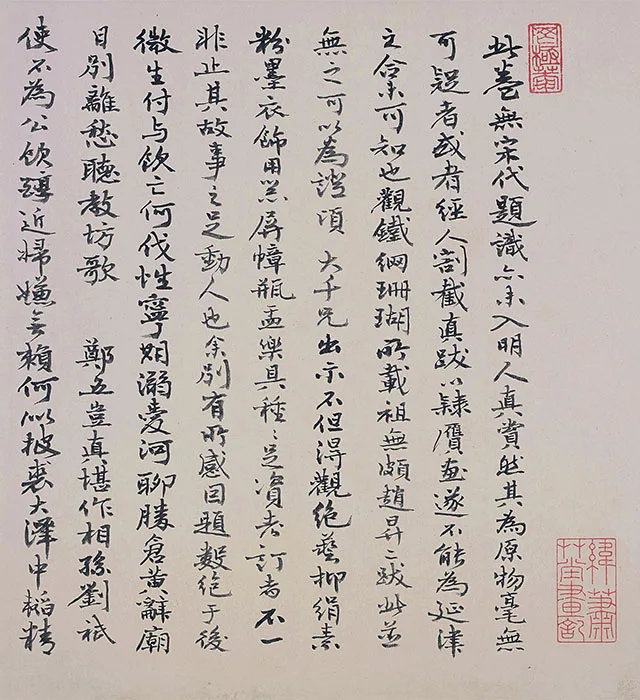 此卷無宋代題識亦未入明人真賞然其為原物毫無
可疑者或者經人割截真跋以隸贗畫遂不能為延津
之合未可知也觀鐵網珊瑚所載祖無頗趙昇二跋此並
無之可以為證頃 大千兄出示不但得觀絕藝抑絹素
粉墨衣飾用器屏幛瓶盂樂具種〻足資考訂者不一
非止其故事之足動人也余別有所感因題數絕于後
微生付与飲亡何伐性寧溺愛河聊勝倉黃辭廟
日別離愁聽教坊歌 鄭五豈真堪作相孫劉祇
使不為公飲醇近婦嫌無賴何似披裘大澤中 韜精
緯蕭草堂畫記